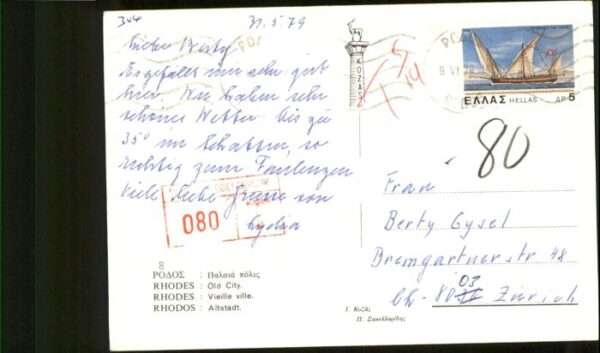 344
31.5.79
Liebe Berty
Es gefällt mir sehr gut
hier. Wir haben sehr
schönes Wetter. Bis zu
35° im Schatten, so
richtig zum Faulenzen
Viele liebe Grüsse von
Lydia
080
ΡΟΔΟΣ : Παλαιά πόλις
RHODES : Old City.
RHODES : Vieille ville.
RHODOS : Altstadt.
8
KOZAS
ΕΛΛΑΣ HELLAS ΔΡ 5
80
Frau
Berty Gysel
Bremgartnerstr 48
CH-80 03 Zürich